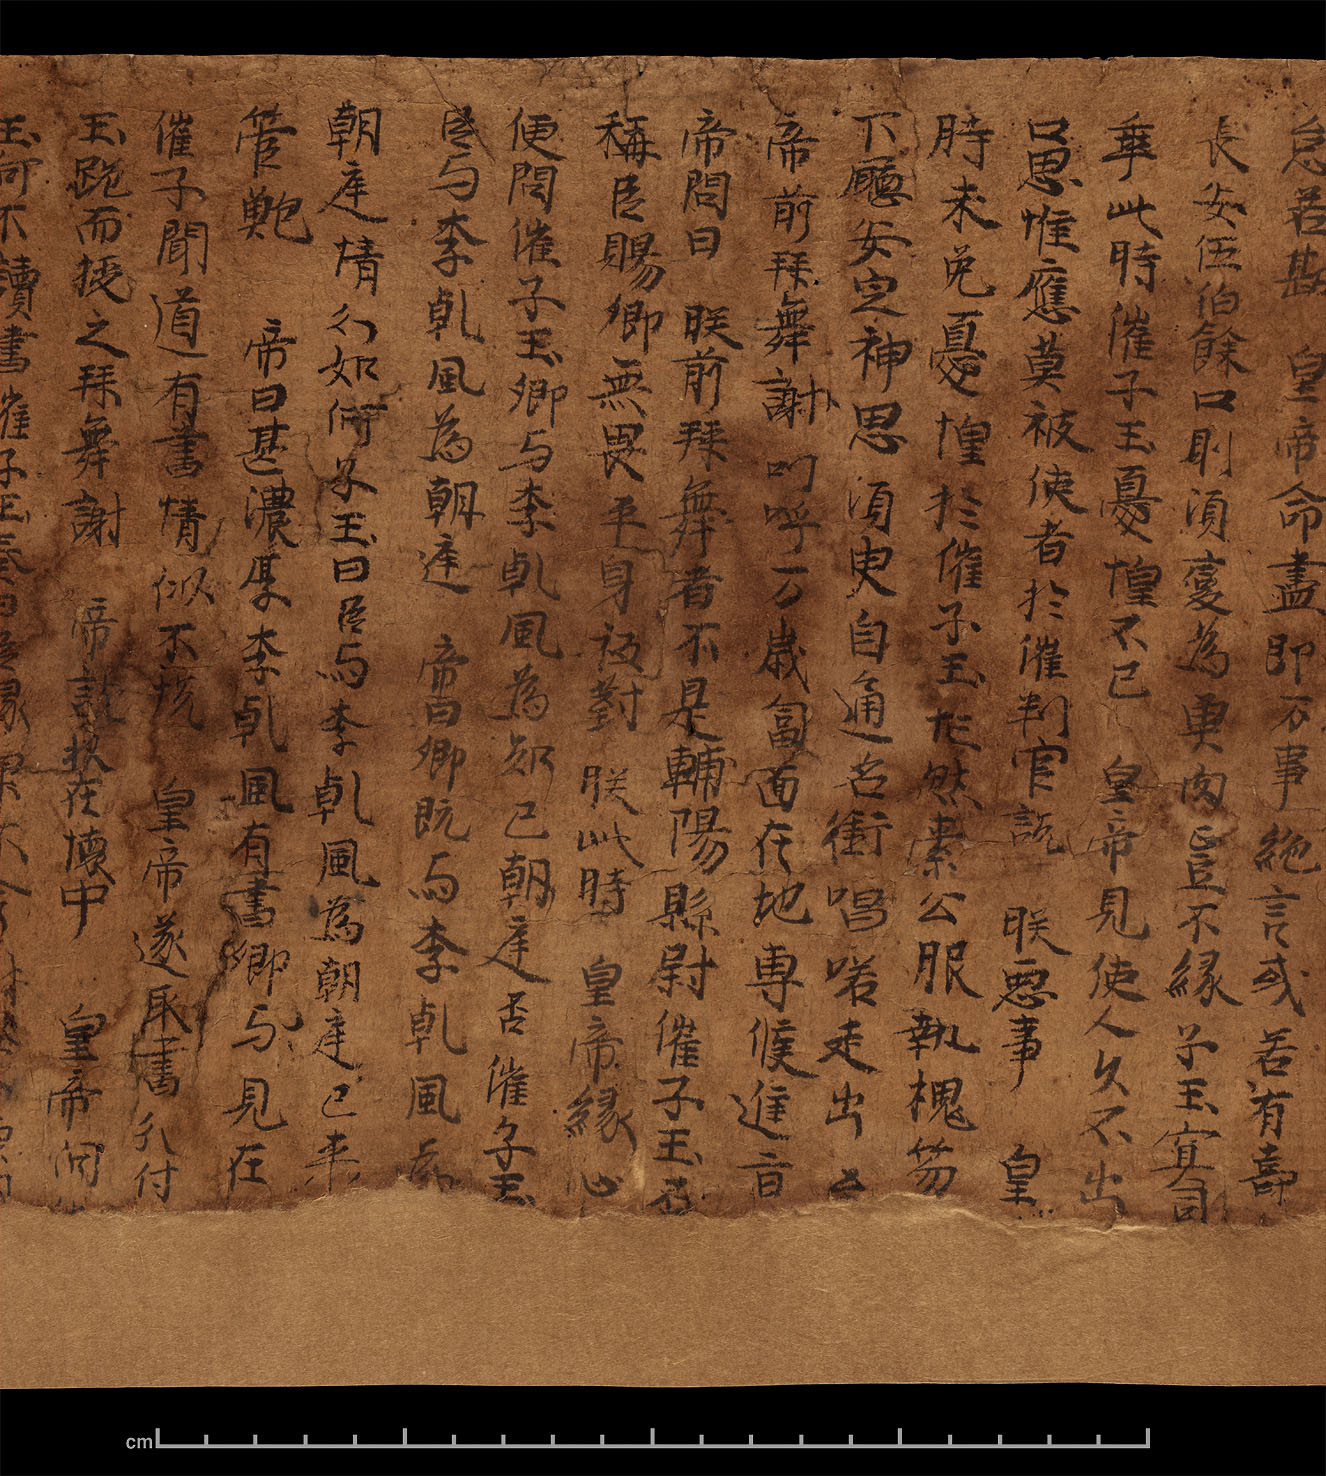 忩若斟　皇帝命盡即万事絶言或若有壽
長安伍伯餘口則須變為東肉豈不緣子玉冥司
乖此時催子玉憂惶不已　皇帝見使人久不出
口思惟應莫被使者於催判官說　朕惡事　皇
時未免憂惶於催子玉忙然索公服執槐笏
下廳安定神思須臾自通名銜唱喏走出
帝前拜舞謝叫呼万歲匐面在地專候進旨
帝問曰　朕前拜舞者不是輔陽縣尉催子玉否
稱臣賜卿無畏平身祗對　朕此時　皇帝緣心
便問催子玉卿与李乹風為知已朝庭否催子玉
臣与李乹風為朝庭　帝曰卿既与李乹風為
朝庭情分如何子玉曰臣与李乹風為朝庭已来
管鮑　帝曰甚濃厚李乹風有書卿与見在
催子聞道有書情似不悦　皇帝遂取書分付
玉跪而授之拜舞謝　帝訖收在懷中　皇帝問
玉何不讀書催子玉奏曰臣緣